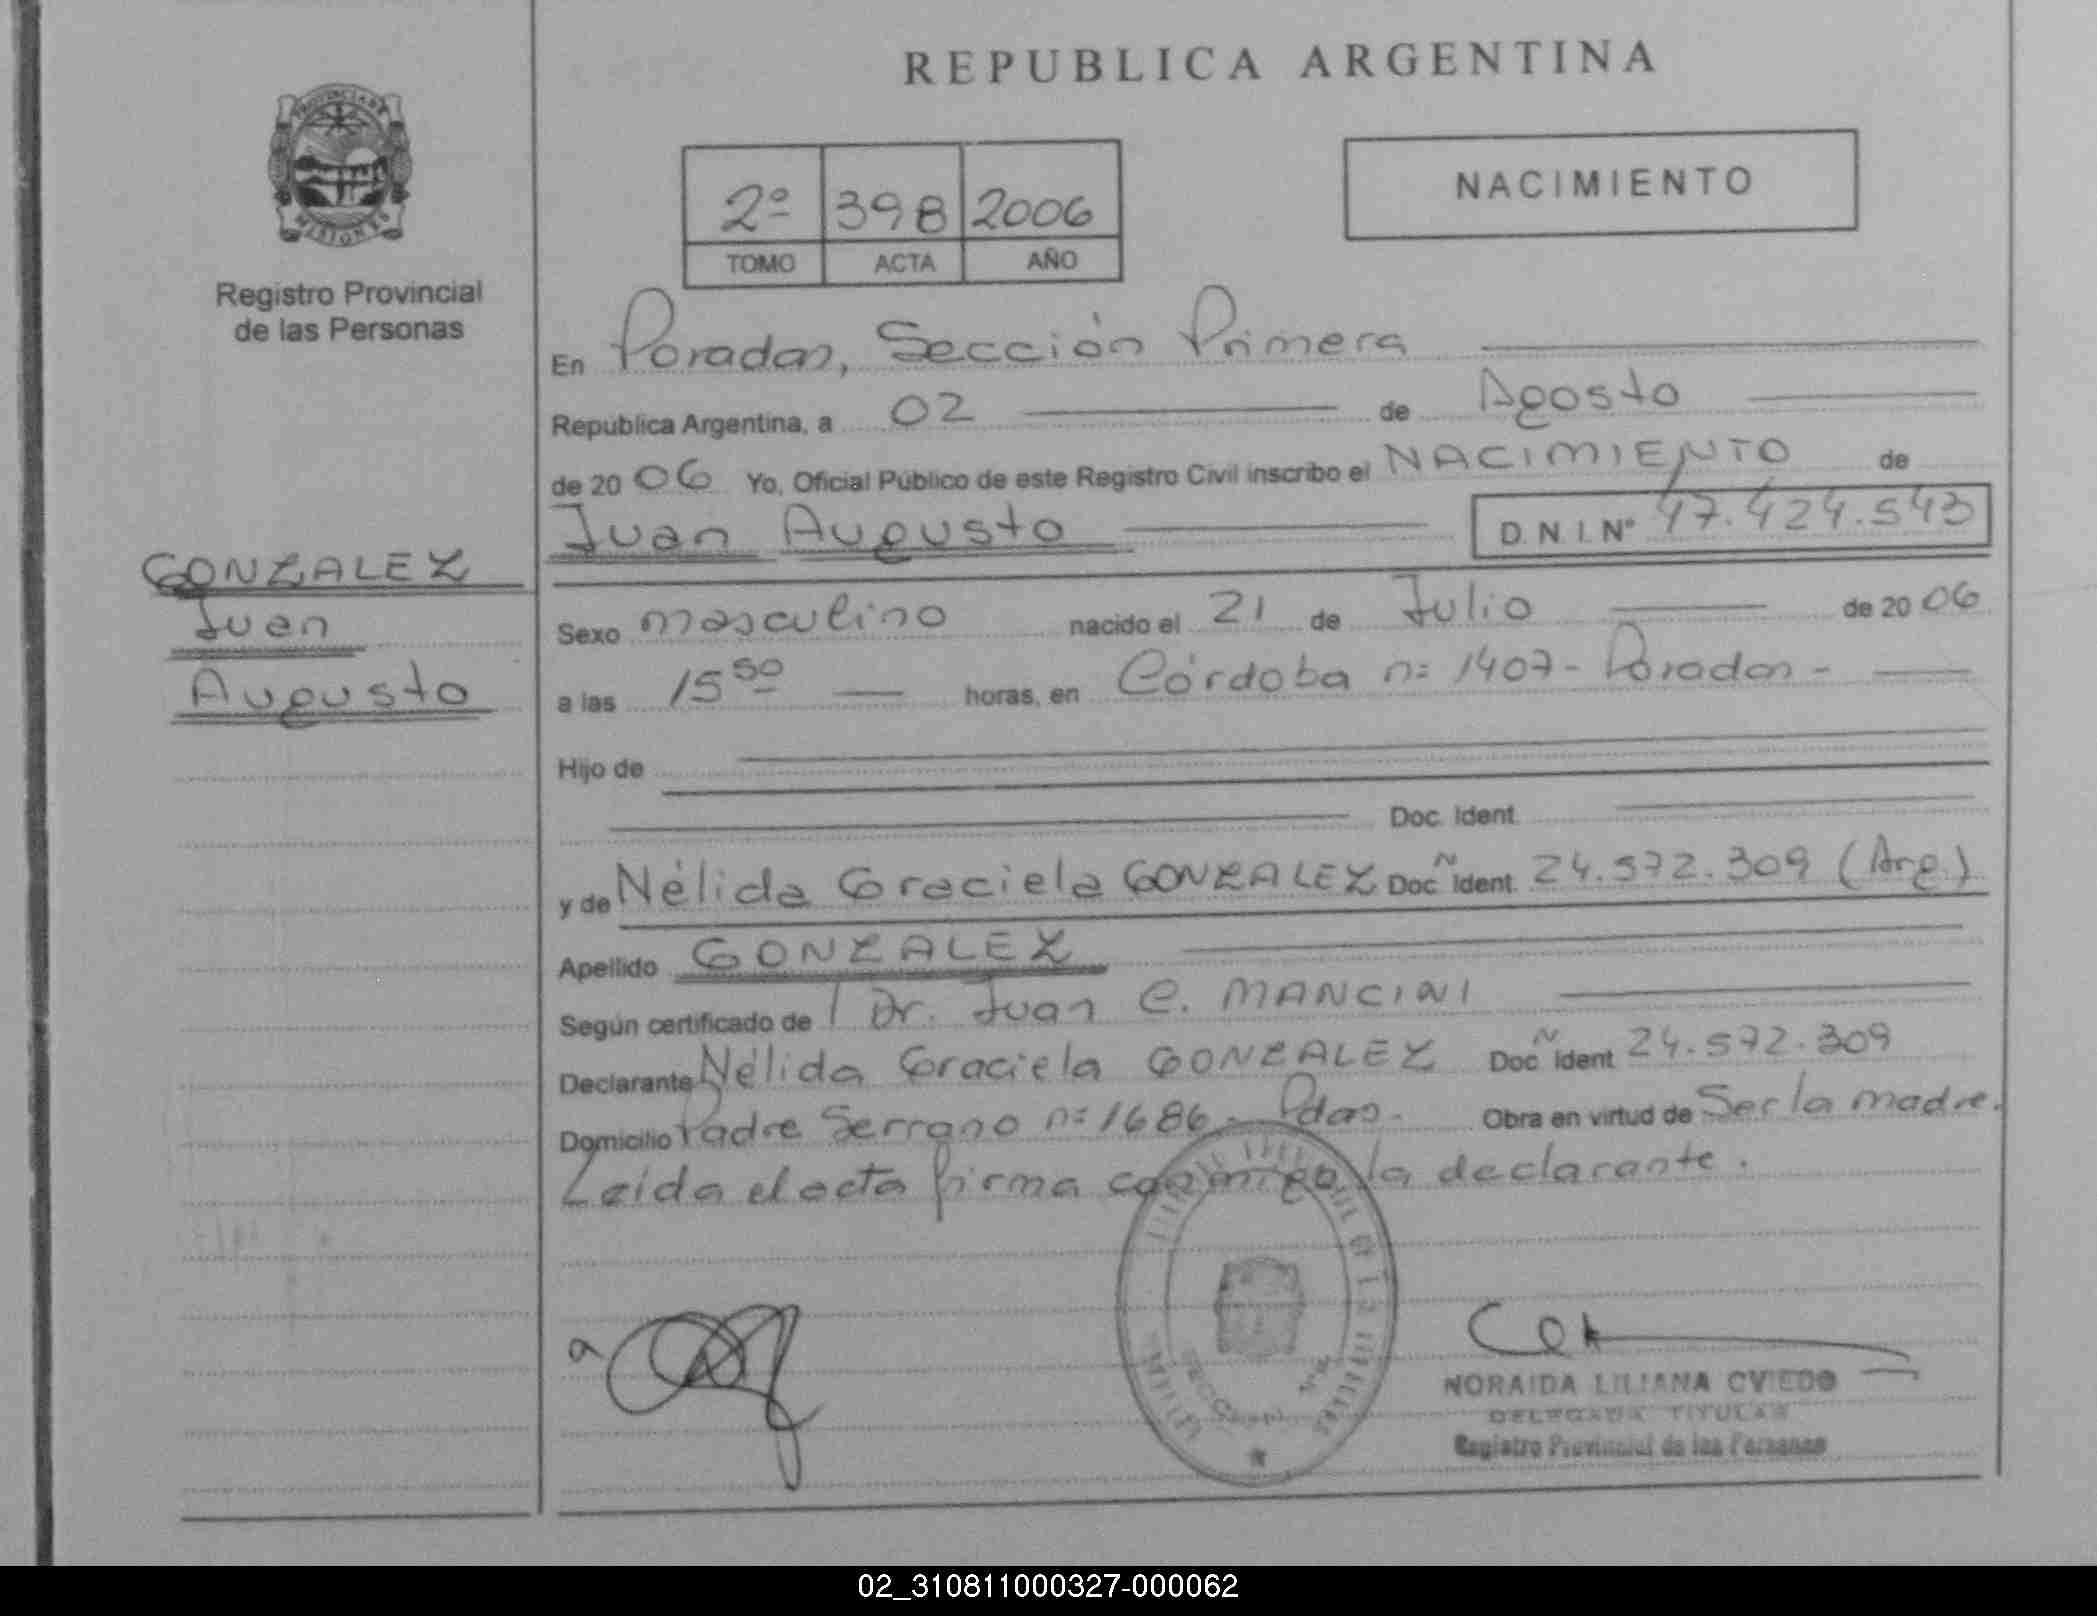 REPUBLICA ARGENTINA
PROVINCIA DE
MISIONES
Registro Provincial
de las Personas
NACIMIENTO
2º 398 2006
TOMO ACTA AÑO
En Posadas, Sección Primera
Republica Argentina, a 02 de Agosto
de 2006 Yo, Oficial Público de este Registro Civil inscribo el NACIMIENTO de
Juan Augusto D.N.I. Nº 47.424.543
GONZALEZ
Juan
Augusto
Sexo masculino nacido el 21 de Julio de 2006
a las 15 50 horas, en Córdoba nº 1407 - Posadas -
Hijo de
Doc. Ident.
y de Nélida Graciela GONZALEZ Doc. Ident. 24.572.309 (Arg.)
Apellido GONZALEZ
Según certificado de Dr. Juan C. MANCINI
Declarante Nélida Graciela GONZALEZ Doc. Ident 24.572.309
Domicilio Padre Serrano nº 1686 - Pdas. Obra en virtud de Ser la madre.
Leída el acta firma conmigo la declarante.
NORAIDA LILIANA OVIEDO
DELEGADA TITULAR
Registro Provincial de las Personas
02_310811000327-000062